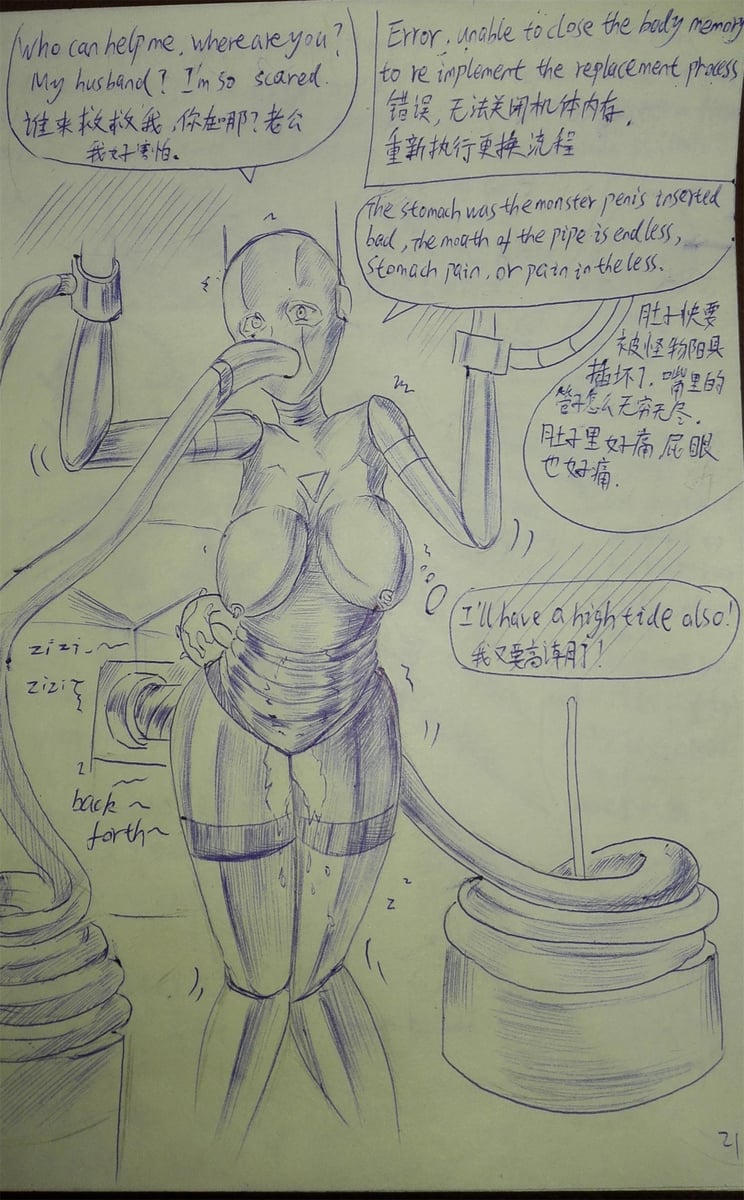 Who can help me, where are you?
My husband? I'm so scared.
谁来救救我,你在哪?老公
我好害怕。
Error, unable to close the body memory
to re implement the replacement process
错误,无法关闭机体内存,
重新执行更换流程
The stomach was the monster penis inserted
bad, the moath of the pipe is endless,
stomach pain, or pain in the less.
肚子快要
被怪物阳具
插坏了,嘴里的
管子怎么无穷无尽,
肚子里好痛,屁眼
也好痛.
I'll have a high tide also!
我又要高潮了!
zizi
zizi
back
forth
21